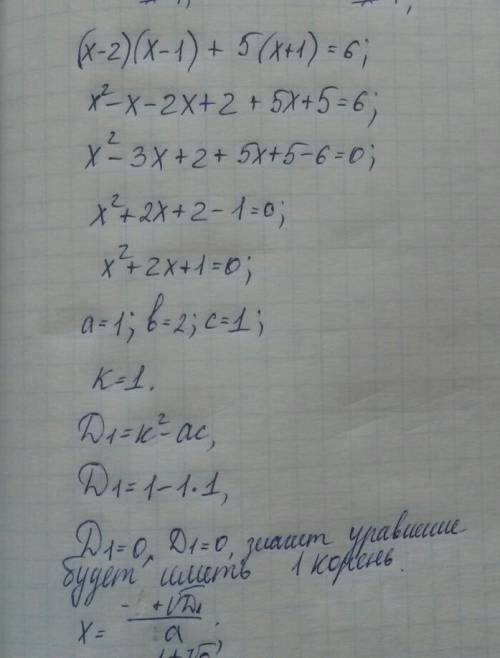 (x-2)(x-1) + 5(x+1) = 6;
x²-x-2x+2 + 5x+5=6;
x²-3x+2+5x+5-6=0;
x²+2x+2-1=0;
x²+2x+1=0;
a=1; b=2; c=1;
k=1.
D₁=k²-ac,
D₁=1-1·1,
D₁=0, D₁=0, значит уравнение
будет иметь 1 корень.
x= - +√D₁ / a ;